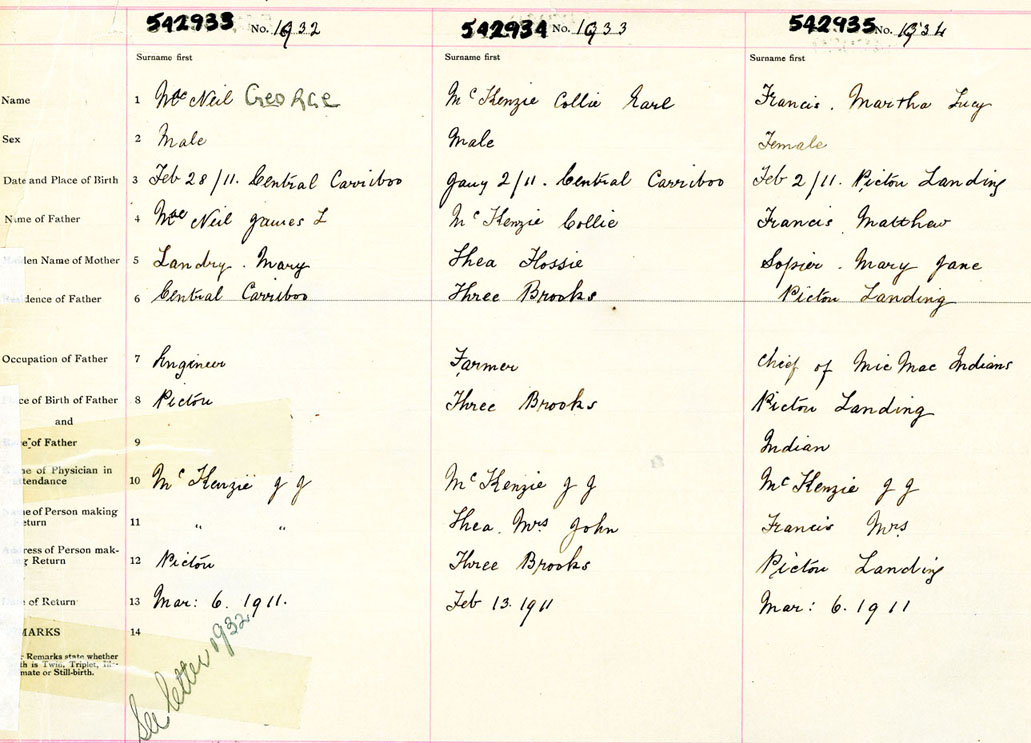 542933 No. 1932 542934 No. 1933 542935 No. 1934
Surname first Surname first Surname first
Name 1 Mac Neil George Mc Kenzie Collie Earl Francis. Martha Lucy
Sex 2 Male Male Female
Date and Place of Birth 3 Feb 28/11. Central Carriboo Jany 2/11. Central Carriboo Feb 2/11. Pictou Landing
Name of Father 4 Mac Neil James L Mc Kenzie Collie Francis Matthew
Maiden Name of Mother 5 Landry. Mary Shea Flossie Sopier. Mary Jane
Residence of Father 6 Central Carriboo Three Brooks Pictou Landing
Occupation of Father 7 Engineer Farmer Chief of Mic Mac Indians
Place of Birth of Father 8 Pictou Three Brooks Pictou Landing
and
of Father 9 Indian
Name of Physician in
attendance 10 Mc Kenzie J J Mc Kenzie J J Mc Kenzie J J
Name of Person making
Return 11 " " Shea. Mrs John Francis Mrs
Address of Person mak-
g Return 12 Pictou Three Brooks Pictou Landing
Date of Return 13 Mar: 6. 1911. Feb 13. 1911 Mar: 6. 1911
MARKS 14
r Remarks state whether
th is Twin, Triplet, Ille-
mate or Still-birth.
See letter 1932